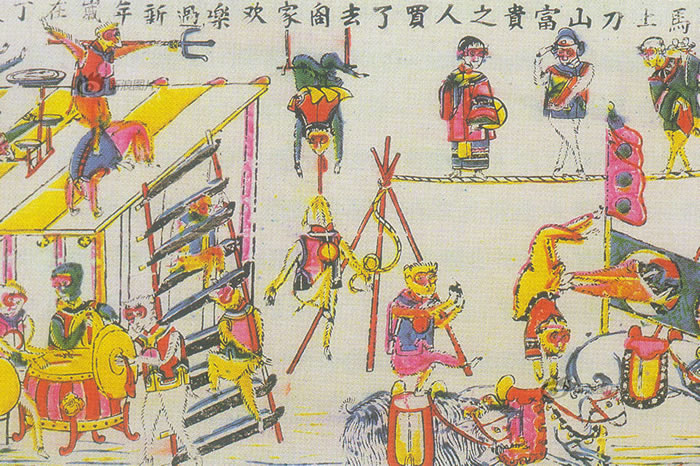 馬上刀山富貴之人買了去閤家欢樂過新年歲在丁